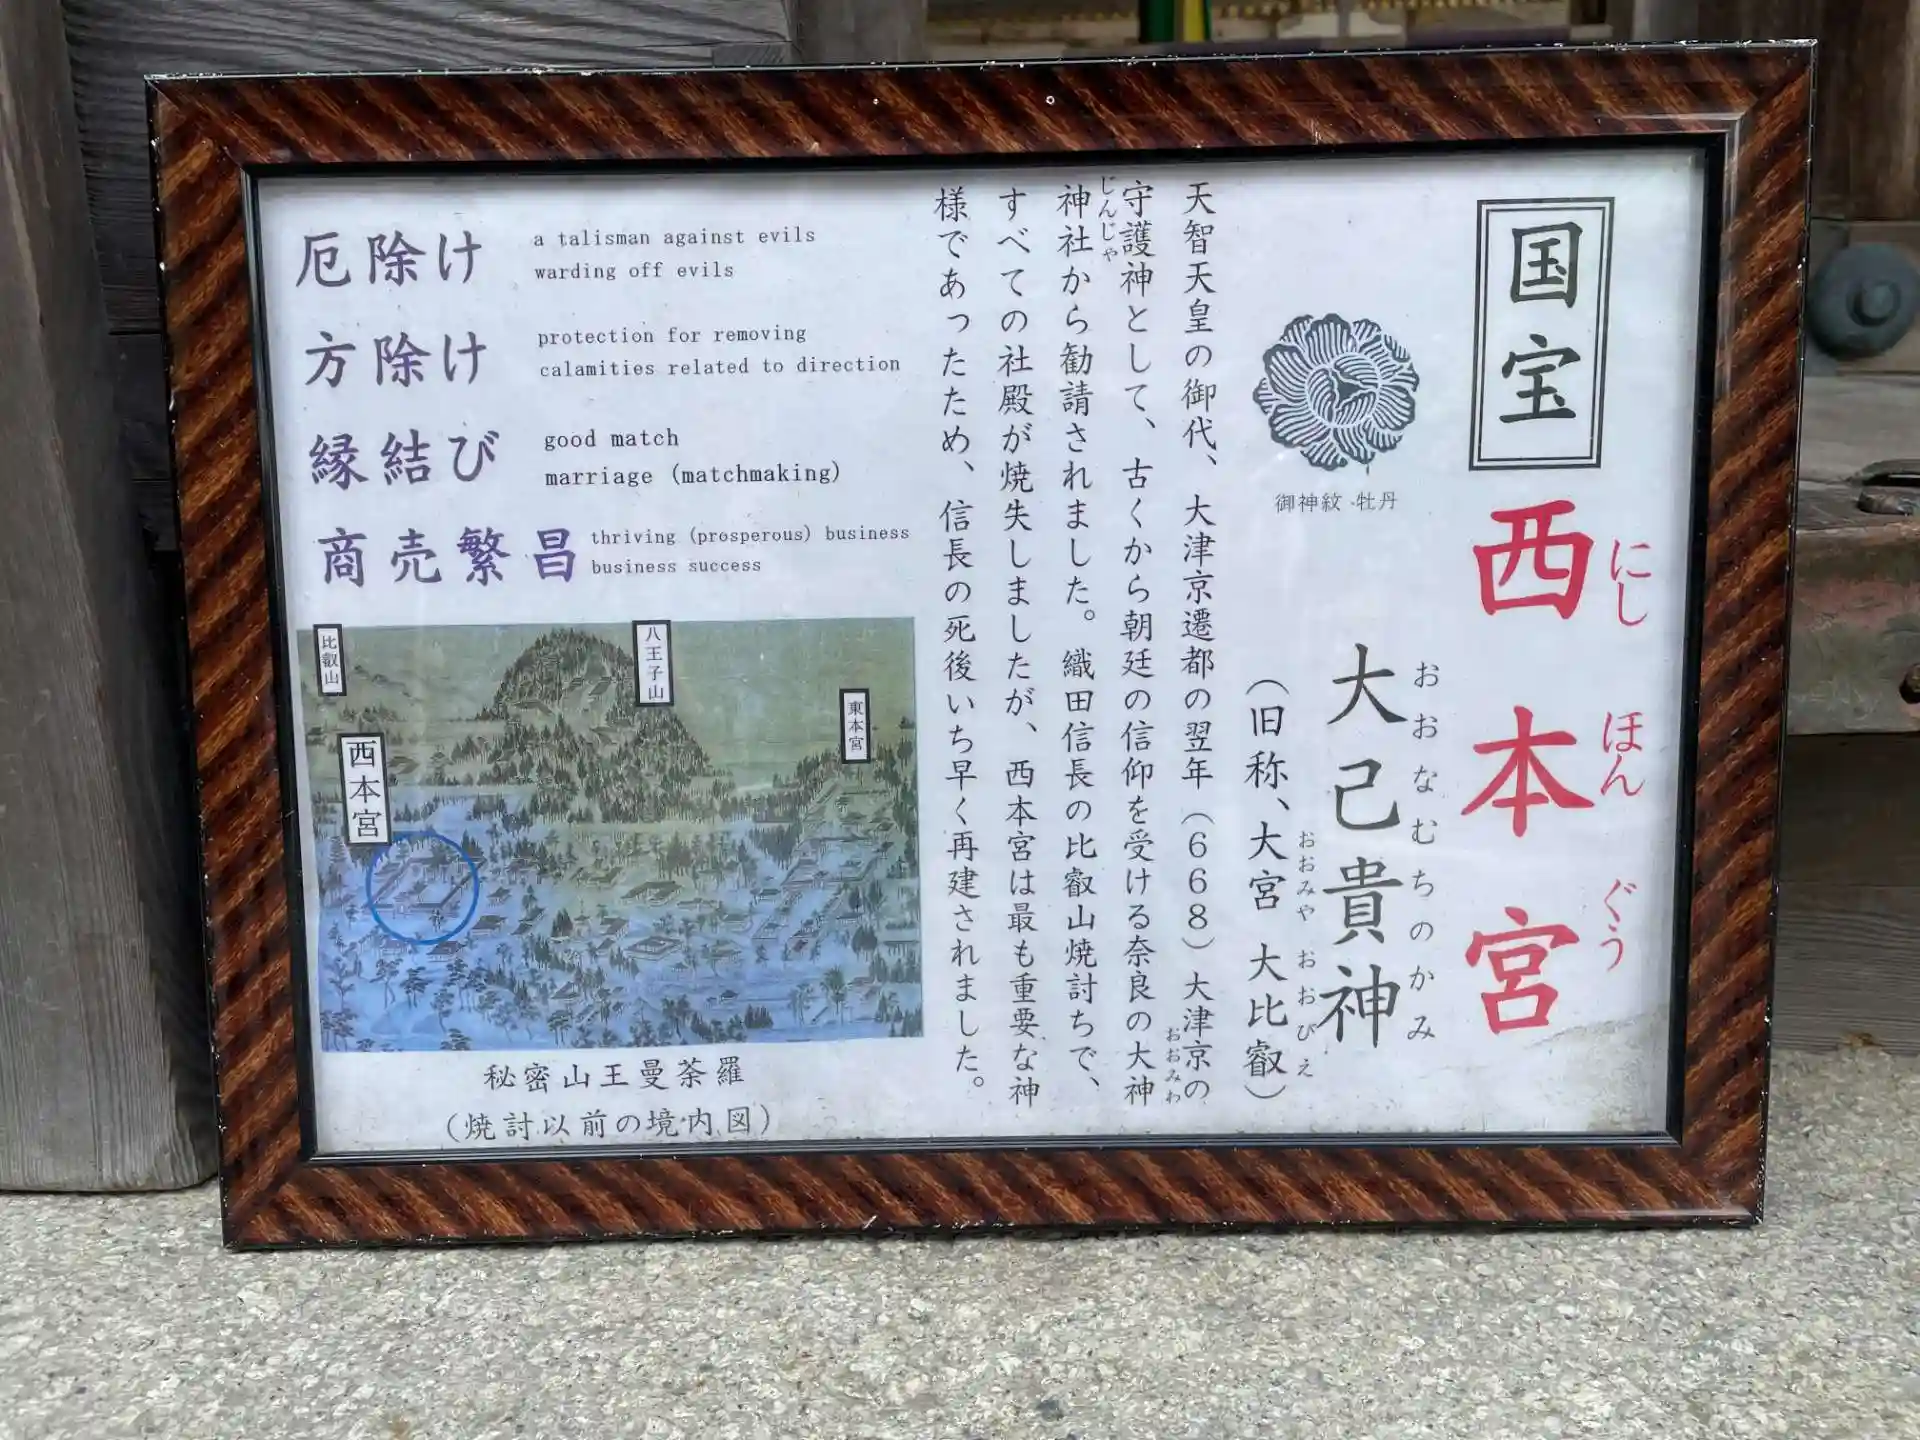 国宝
西本宮
にし ほん ぐう
御神紋 牡丹
大己貴神
おおなむちのかみ
（旧称、大宮 大比叡）
おおみや おおびえ
天智天皇の御代、大津京遷都の翌年（668）大津京の
守護神として、古くから朝廷の信仰を受ける奈良の大神
おおみわ
神社から勧請されました。織田信長の比叡山焼討ちで、
じんじゃ
すべての社殿が焼失しましたが、西本宮は最も重要な神
様であったため、信長の死後いち早く再建されました。
厄除け
a talisman against evils
warding off evils
方除け
protection for removing
calamities related to direction
縁結び
good match
marriage (matchmaking)
商売繁昌
thriving (prosperous) business
business success
比叡山
八王子山
東本宮
西本宮
秘密山王曼荼羅
（焼討以前の境内図）